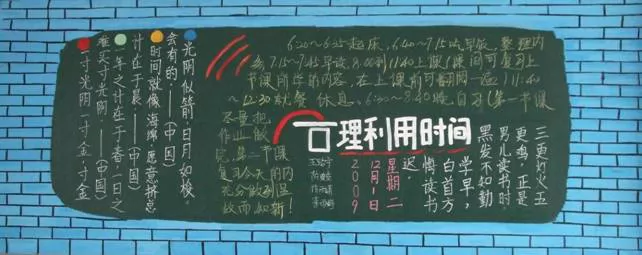 光阴似箭,日月如梭。
会有的。——(中国)
时间就像海绵,愿意挤总
计在于晨——(中国)
一年之计在于春一日之
难买寸光阴——(中国)
一寸光阴一寸金寸金
6:20~6:25起床,6:40~7:15吃早饭、整理内
务7:15~7:45早读8:00到11:40上课(课间可复习上
节课所学的内容,在上课前可翻阅一遍)11:40
~12:30就餐休息、
自习(第一节课
尽量把
作业做
完,第二节课
复习今天的内
理利用时间
三更灯火五
更鸡,正是
男儿读书时,
黑发不知勤
学早,
白首方
悔读书
迟。
星期二
12月1日
2009